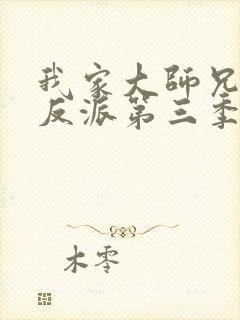 我家大師兄
反派第三季
木零